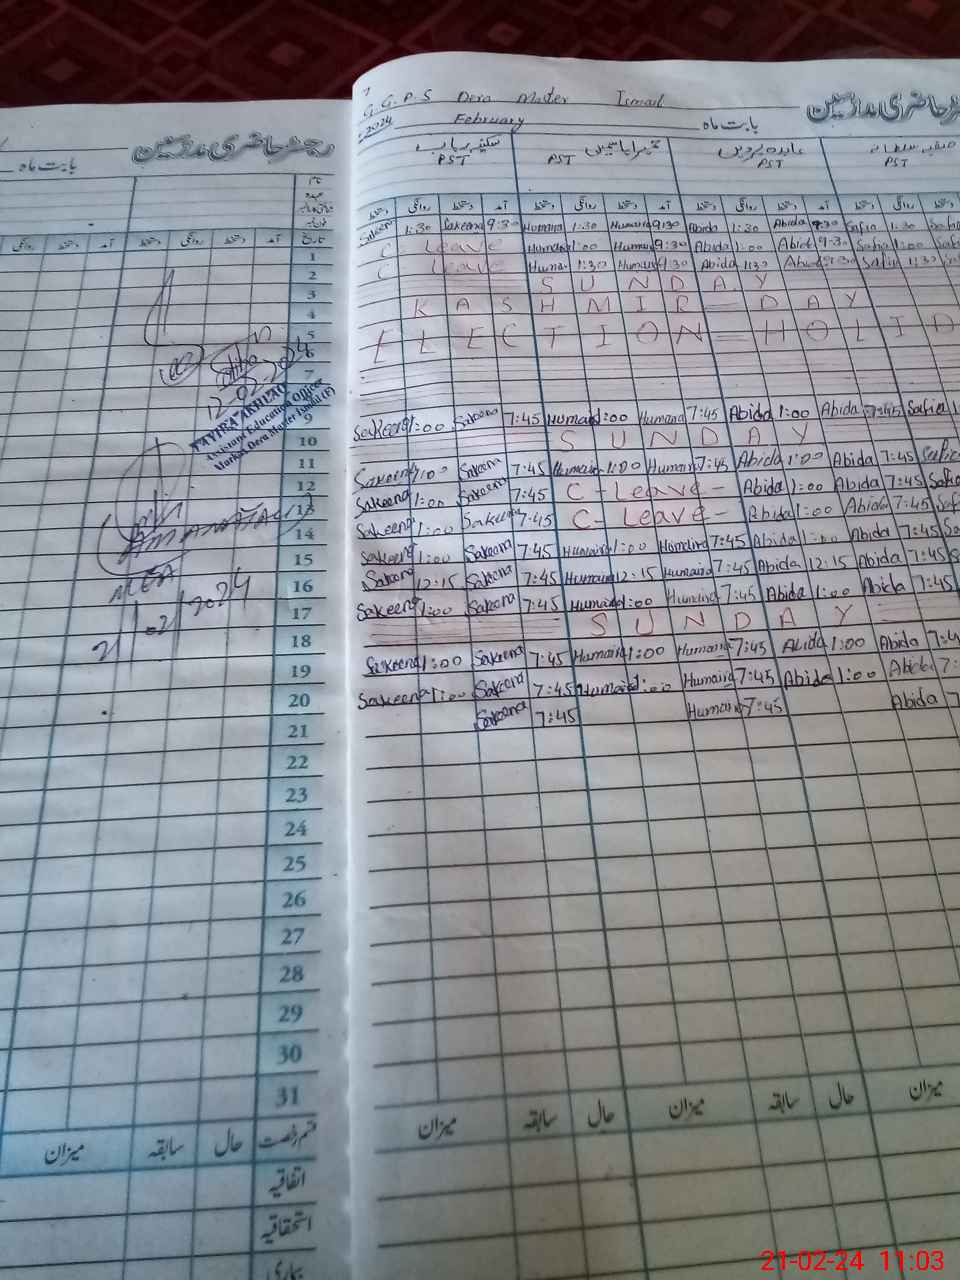 رجسٹر حاضری مدرسین
بابت ماہ
نام
عہدہ
تاریخ
آمد دستخط روانگی دستخط آمد دستخط روانگی
1
2
3
4
5
6
7
12-02-2024
TAYIBA AKHLAQ
Assistant Education Officer
Markaz Dera Master Ismail (F)
9
10
11
12
13
14
15
16
17
MEA
21/02/2024
18
19
20
21
22
23
24
25
26
27
28
29
30
31
قسم رخصت حال سابقہ میزان
اتفاقیہ
استحقاقیہ
بیماری
G.G.P.S Dera Master Ismail
رجسٹر حاضری مدرسین
2024 February بابت ماہ
سکینہ رباب حمیرا یاسمین عابدہ پروین
PST PST PST PST
دستخط روانگی دستخط آمد دستخط روانگی دستخط آمد دستخط روانگی دستخط آمد دستخط روانگی دستخط
Sakeena 1:30 Sakeena 9:30 Humaira 1:30 Humaira 9:30 Abida 1:30 Abida 9:30 Safia 1:30 Safia
C Leave Humaira 1:00 Humaira 9:30 Abida 1:00 Abida 9:30 Safia 1:00 Safia
C Leave Huma 1:30 Humaira 9:30 Abida 1:30 Abida 9:30 Safia 1:30
SUNDAY
KASHMIR DAY
ELECTION = HOLID
Sakeena 1:00 Sakeena 7:45 Humaira 1:00 Humaira 7:45 Abida 1:00 Abida 7:45 Safia
SUNDAY
Sakeena 1:00 Sakeena 7:45 Humaira 1:00 Humaira 7:45 Abida 1:00 Abida 7:45 Safia
Sakeena 1:00 Sakeena 7:45 C - Leave - Abida 1:00 Abida 7:45 Safia
Sakeena 1:00 Sakeena 7:45 C - Leave - Abida 1:00 Abida 7:45
Sakeena 1:00 Sakeena 7:45 Humaira 1:00 Humaira 7:45 Abida 1:00 Abida 7:45
Sakeena 12:15 Sakeena 7:45 Humaira 12:15 Humaira 7:45 Abida 12:15 Abida 7:45
Sakeena 1:00 Sakeena 7:45 Humaira 1:00 Humaira 7:45 Abida 1:00 Abida 7:45
SUNDAY
Sakeena 1:00 Sakeena 7:45 Humaira 1:00 Humaira 7:45 Abida 1:00 Abida 7:4
Sakeena 1:00 Sakeena 7:45 Humaira 1:00 Humaira 7:45 Abida 1:00 Abida 7:
Sakeena 7:45 Humaira 7:45 Abida 7
میزان حال سابقہ میزان حال سابقہ میزان
21-02-24 11:03